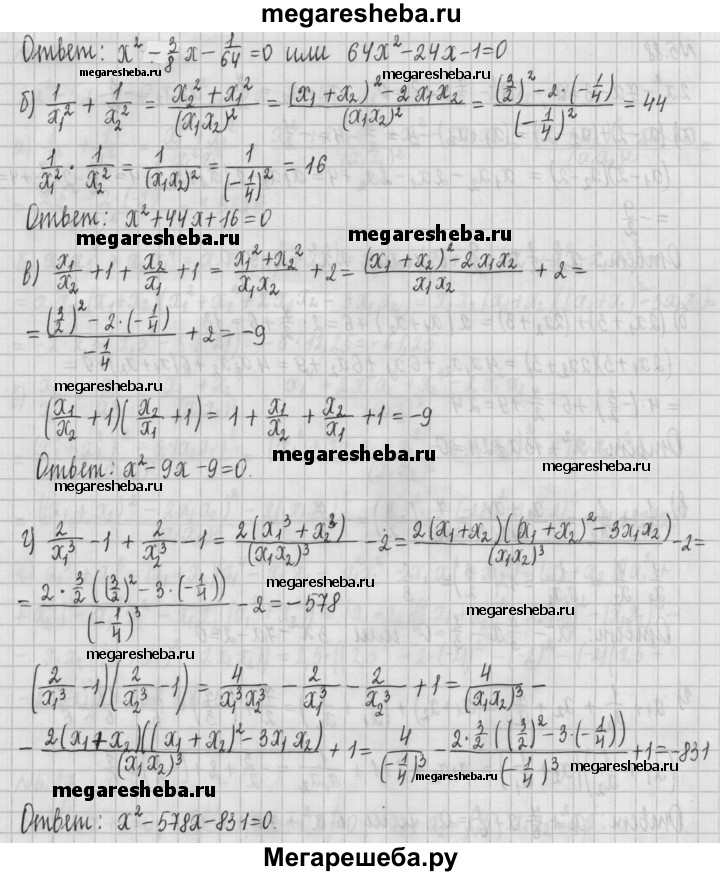 megaresheba.ru
Ответ: x² - 3/8 x - 1/64 = 0 или 64x² - 24x - 1 = 0
megaresheba.ru megaresheba.ru
б) 1/x₁² + 1/x₂² = (x₂² + x₁²)/(x₁x₂)² = ((x₁ + x₂)² - 2x₁x₂)/(x₁x₂)² = ((3/2)² - 2·(-1/4))/(-1/4)² = 44
1/x₁² · 1/x₂² = 1/(x₁x₂)² = 1/(-1/4)² = 16
Ответ: x² + 44x + 16 = 0
megaresheba.ru megaresheba.ru
в) x₁/x₂ + 1 + x₂/x₁ + 1 = (x₁² + x₂²)/(x₁x₂) + 2 = ((x₁ + x₂)² - 2x₁x₂)/(x₁x₂) + 2 =
= ((3/2)² - 2·(-1/4))/(-1/4) + 2 = -9
megaresheba.ru megaresheba.ru
(x₁/x₂ + 1)(x₂/x₁ + 1) = 1 + x₁/x₂ + x₂/x₁ + 1 = -9
megaresheba.ru
Ответ: x² - 9x - 9 = 0.
megaresheba.ru
г) 2/x₁³ - 1 + 2/x₂³ - 1 = 2(x₁³ + x₂³)/(x₁x₂)³ - 2 = 2(x₁ + x₂)((x₁ + x₂)² - 3x₁x₂)/(x₁x₂)³ - 2 =
= (2·3/2((3/2)² - 3·(-1/4)))/(-1/4)³ - 2 = -578
megaresheba.ru
megaresheba.ru
(2/x₁³ - 1)(2/x₂³ - 1) = 4/(x₁³x₂³) - 2/x₁³ - 2/x₂³ + 1 = 4/(x₁x₂)³ -
- 2(x₁ + x₂)((x₁ + x₂)² - 3x₁x₂)/(x₁x₂)³ + 1 = 4/(-1/4)³ - (2·3/2((3/2)² - 3·(-1/4)))/(-1/4)³ + 1 = -831
megaresheba.ru megaresheba.ru megaresheba.ru
Ответ: x² - 578x - 831 = 0.
megaresheba.ru
Мегарешеба.ру